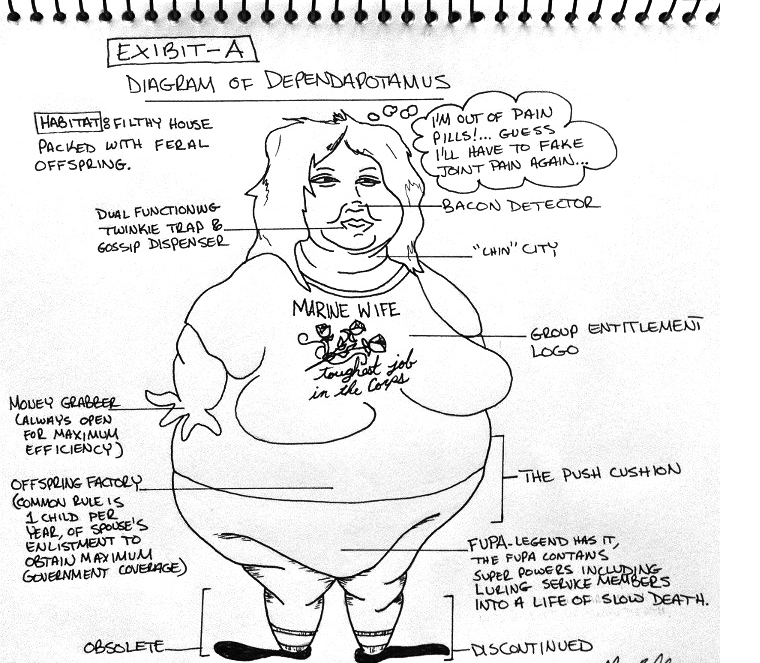 EXIBIT-A
DIAGRAM OF DEPENDAPOTAMUS
HABITAT: FILTHY HOUSE
PACKED WITH FERAL
OFFSPRING.
I'M OUT OF PAIN
PILLS!... GUESS
I'LL HAVE TO FAKE
JOINT PAIN AGAIN...
DUAL FUNCTIONING
TWINKIE TRAP &
GOSSIP DISPENSER
BACON DETECTOR
"CHIN" CITY
MARINE WIFE
toughest job
in the Corps
GROUP ENTITLEMENT
LOGO
MONEY GRABBER
(ALWAYS OPEN
FOR MAXIMUM
EFFICIENCY)
OFFSPRING FACTORY
(COMMON RULE IS
1 CHILD PER
YEAR, OF SPOUSE'S
ENLISTMENT TO
OBTAIN MAXIMUM
GOVERNMENT COVERAGE)
THE PUSH CUSHION
FUPA-LEGEND HAS IT,
THE FUPA CONTAINS
SUPER POWERS INCLUDING
LURING SERVICE MEMBERS
INTO A LIFE OF SLOW DEATH.
OBSOLETE
DISCONTINUED